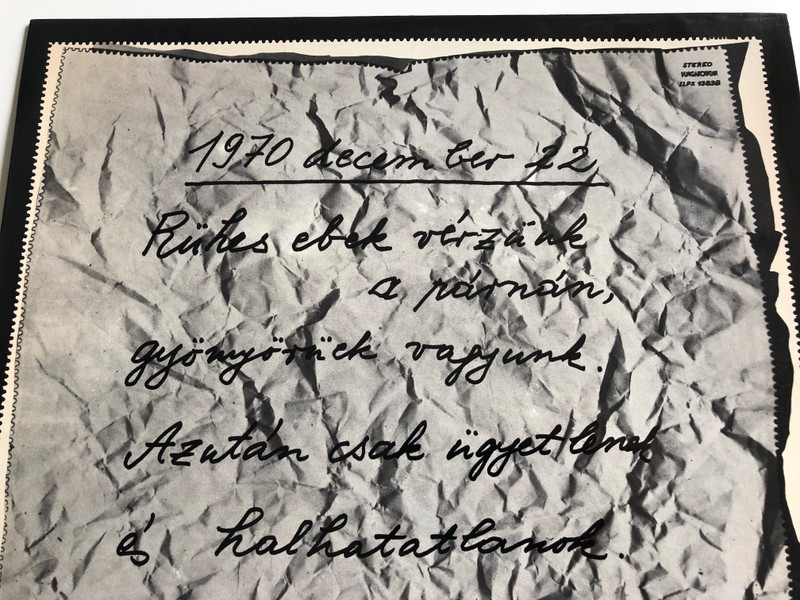 STEREO
HUNGAROTON
SLPX 13838
1970 december 22
Rühes ebek vérzünk
a párnán,
gyönyörűek vagyunk.
Azután csak ügyetlenek
és halhatatlanok.